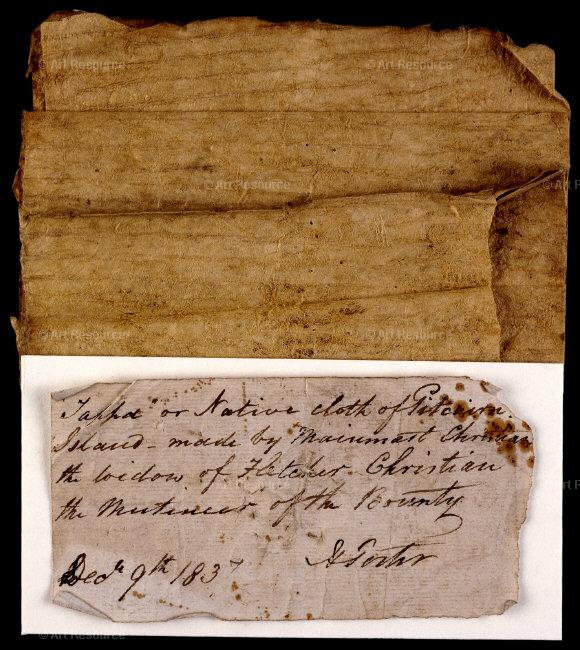 Tappa or Native cloth of Pitcairn
Island - made by Mainmast Christian
the widow of Fletcher Christian
the Mutineer of the Bounty
Decr 9th 1837
© Art Resource
© Art Resource
© Art Resource
© Art Resource
© Art Resource
© Art Resource
© Art Resource